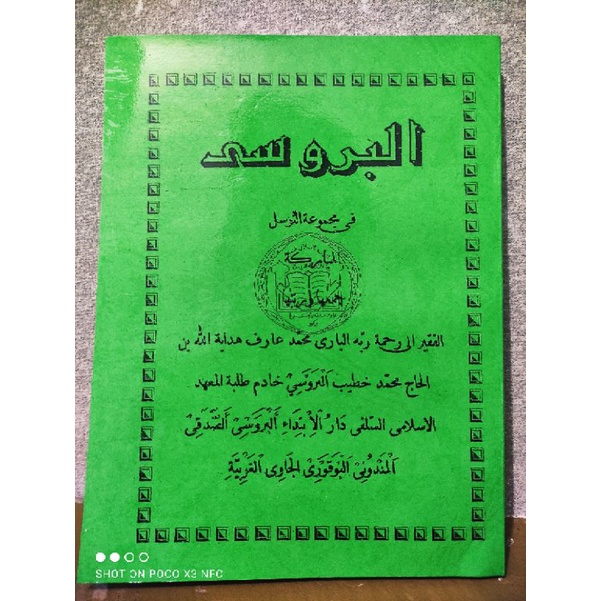 البروسى
في مجموعة التوسل
المباركة
جمعها ورتبها
الفقير الى رحمة ربّه البارى محمّد عارف هداية الله بن
الحاج محمّد خطيب البَروَسِيّ خادم طلبة المعهد
الاسلامى السّلفى دَارُ الْإِبْتِدَاءِ أَلْبَرَوَسِى أَلصَّدَقِى
اَلْمَنْدُونِى اَلْبُوقَوْرِى الجَاوِى الْغَرْبِيَّةِ
SHOT ON POCO X3 NFC